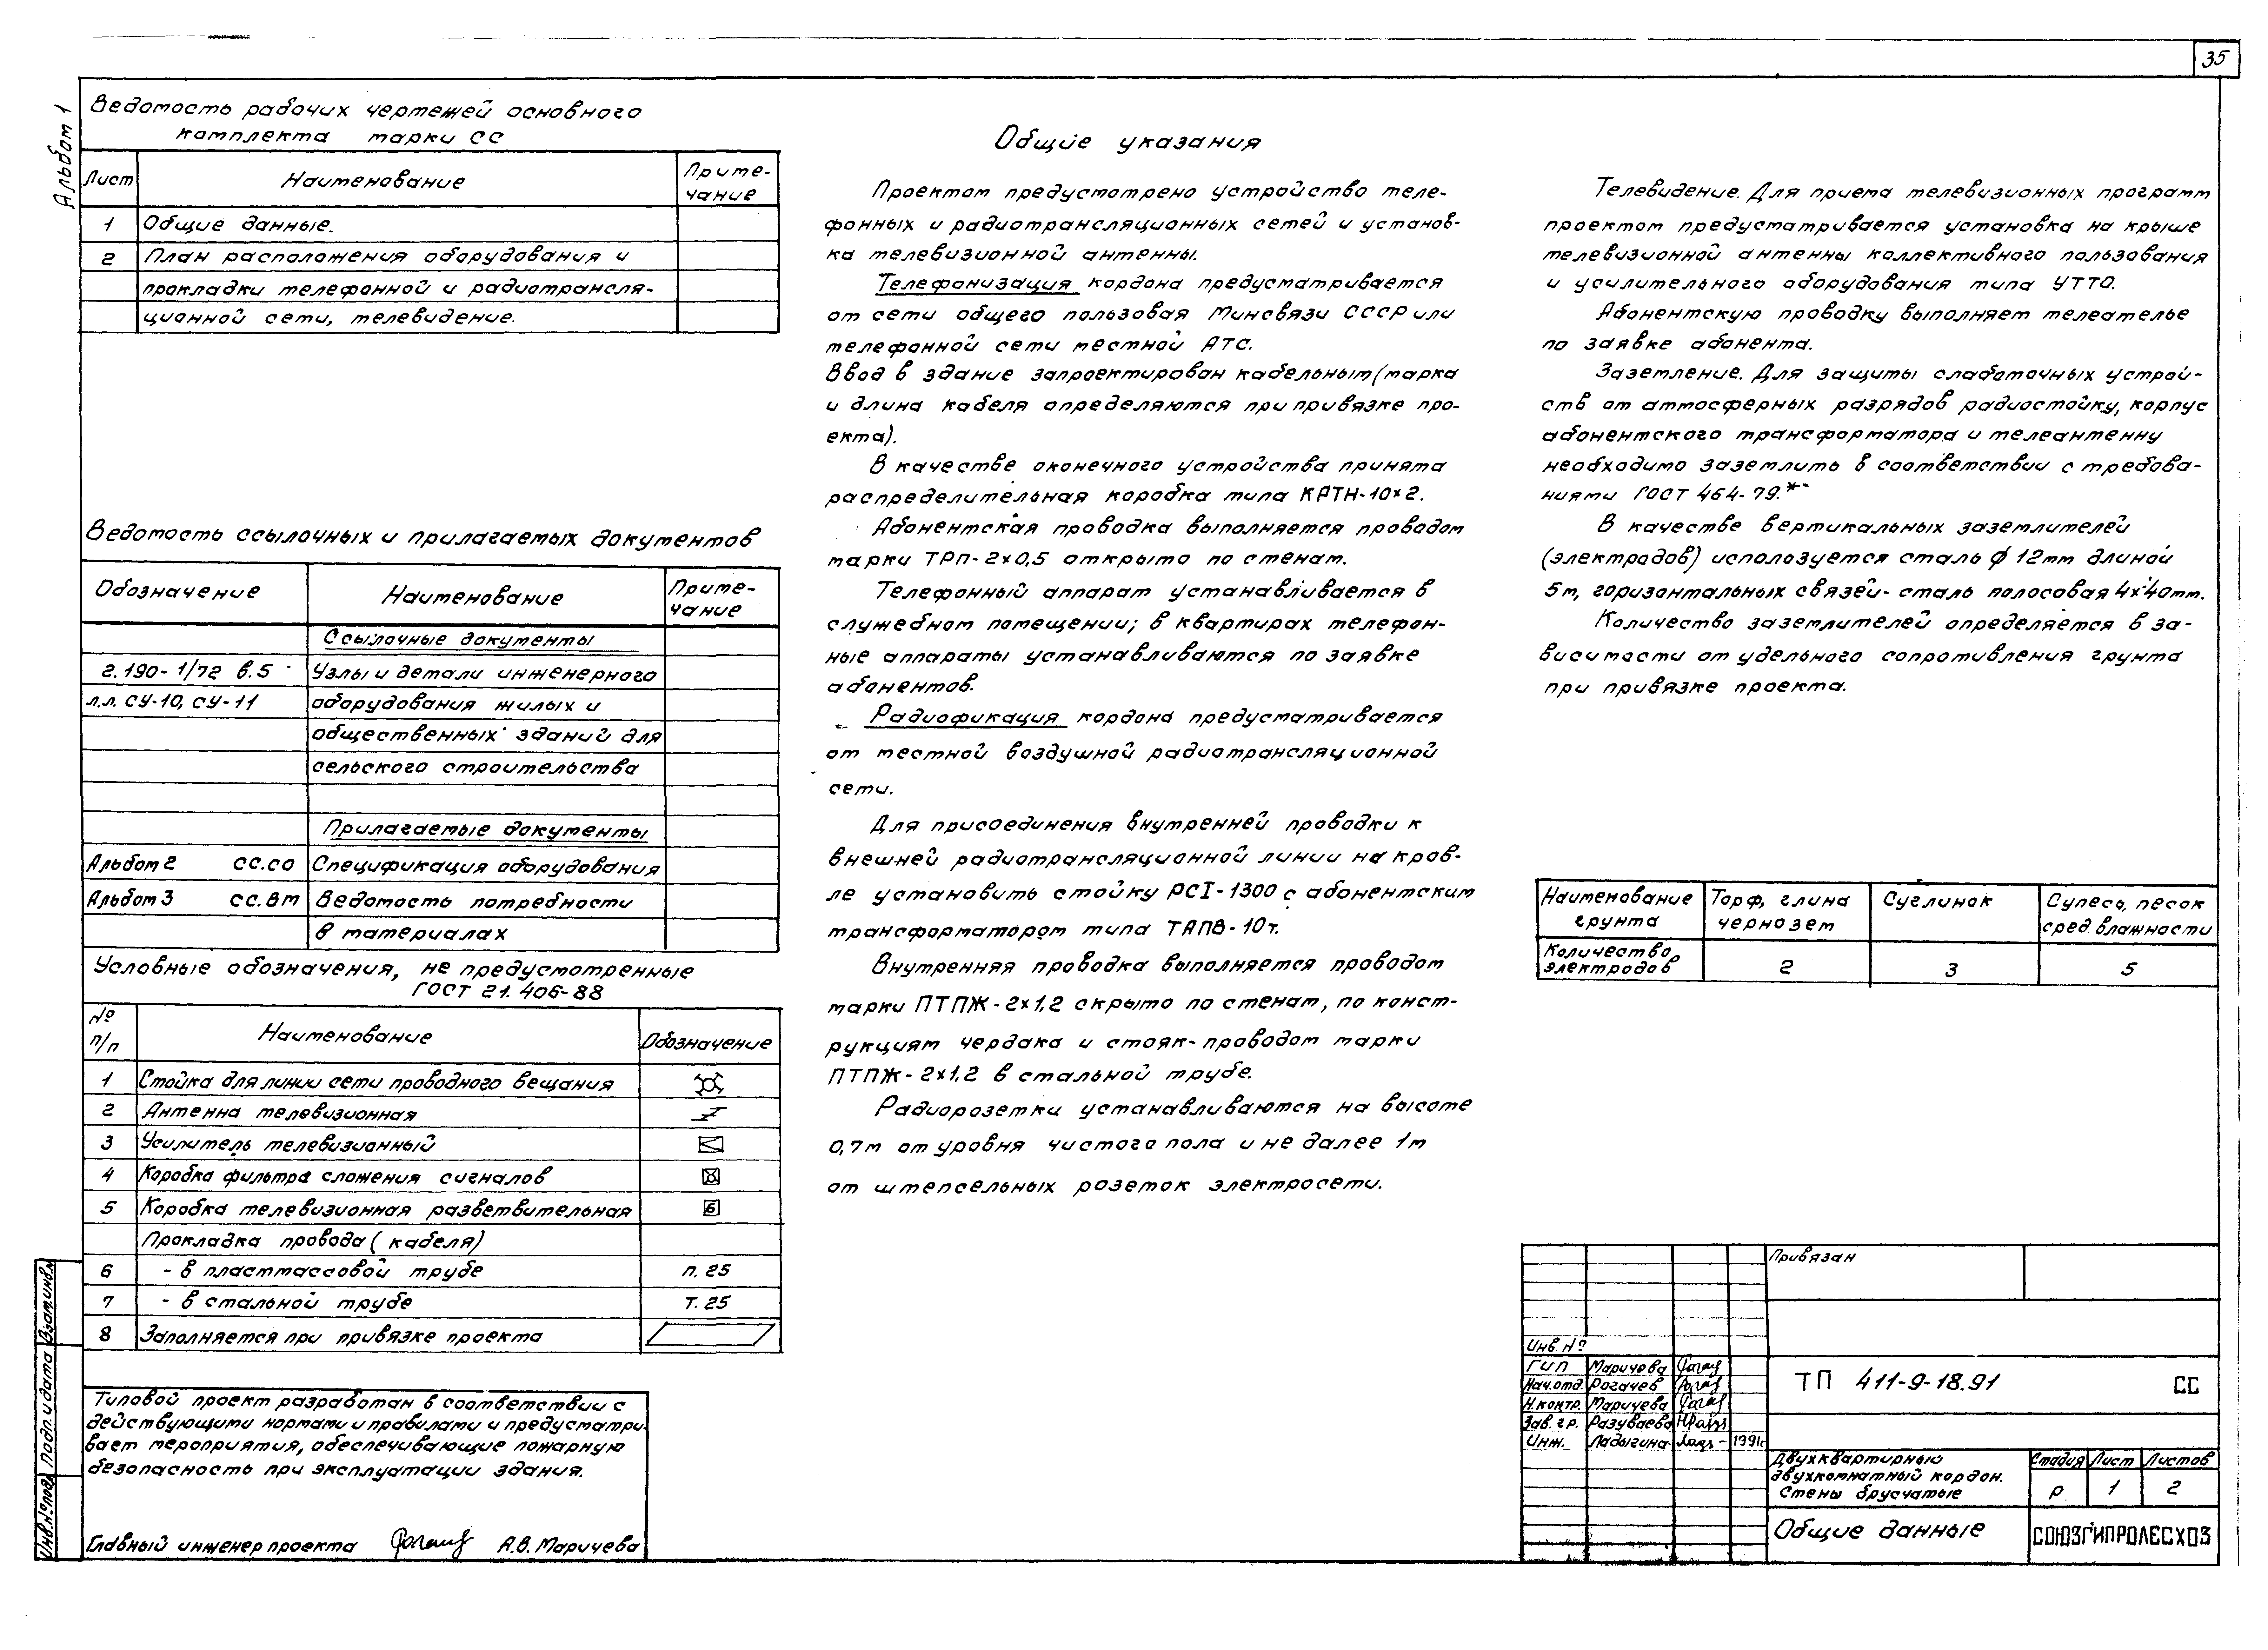 35
Альбом 1
Ведомость рабочих чертежей основного
комплекта марки СС
Лист Наименование Приме-
чание
1 Общие данные.
2 План расположения оборудования и
прокладки телефонной и радиотрансля-
ционной сети, телевидение.
Ведомость ссылочных и прилагаемых документов
Обозначение Наименование Приме-
чание
Ссылочные документы
2.190-1/72 в.5 Узлы и детали инженерного
л.л. СУ-10, СУ-11 оборудования жилых и
общественных зданий для
сельского строительства
Прилагаемые документы
Альбом 2 СС.СО Спецификация оборудования
Альбом 3 СС.ВМ Ведомость потребности
в материалах
Условные обозначения, не предусмотренные
ГОСТ 21.406-88
№
п/п Наименование Обозначение
1 Стойка для линии сети проводного вещания
2 Антенна телевизионная
3 Усилитель телевизионный
4 Коробка фильтра сложения сигналов
5 Коробка телевизионная разветвительная б
Прокладка провода (кабеля)
6 - в пластмассовой трубе п.25
7 - в стальной трубе Т.25
8 Заполняется при привязке проекта
Типовой проект разработан в соответствии с
действующими нормами и правилами и предусматри-
вает мероприятия, обеспечивающие пожарную
безопасность при эксплуатации здания.
Главный инженер проекта А.В. Маричева
Взам.инв.№
Подп. и дата
Инв.№ подл.
Общие указания
Проектом предусмотрено устройство теле-
фонных и радиотрансляционных сетей и установ-
ка телевизионной антенны.
Телефонизация кордона предусматривается
от сети общего пользовая Минсвязи СССР или
телефонной сети местной АТС.
Ввод в здание запроектирован кабельным (марка
и длина кабеля определяются при привязке про-
екта).
В качестве оконечного устройства принята
распределительная коробка типа КРТН-10×2.
Абонентская проводка выполняется проводом
марки ТРП-2×0,5 открыто по стенам.
Телефонный аппарат устанавливается в
служебном помещении; в квартирах телефон-
ные аппараты устанавливаются по заявке
абонентов.
Радиофикация кордона предусматривается
от местной воздушной радиотрансляционной
сети.
Для присоединения внутренней проводки к
внешней радиотрансляционной линии на кров-
ле установить стойку РСI-1300 с абонентским
трансформатором типа ТАПВ-10т.
Внутренняя проводка выполняется проводом
марки ПТПЖ-2×1,2 скрыто по стенам, по конст-
рукциям чердака и стояк-проводом марки
ПТПЖ-2×1,2 в стальной трубе.
Радиорозетки устанавливаются на высоте
0,7м от уровня чистого пола и не далее 1м
от штепсельных розеток электросети.
Телевидение. Для приема телевизионных программ
проектом предусматривается установка на крыше
телевизионной антенны коллективного пользования
и усилительного оборудования типа УТТО.
Абонентскую проводку выполняет телеателье
по заявке абонента.
Заземление. Для защиты слаботочных устрой-
ств от атмосферных разрядов радиостойку, корпус
абонентского трансформатора и телеантенну
необходимо заземлить в соответствии с требова-
ниями ГОСТ 464-79.*
В качестве вертикальных заземлителей
(электродов) используется сталь ϕ 12мм длиной
5м, горизонтальных связей- сталь полосовая 4×40мм.
Количество заземлителей определяется в за-
висимости от удельного сопротивления грунта
при привязке проекта.
Наименование
грунта Торф, глина
чернозем Суглинок Супесь, песок
сред. влажности
Количество
электродов 2 3 5
Привязан
Инв. №
ГИП Маричева
Нач.отд. Рогачев
Н.контр. Маричева
Зав. гр. Разуваева
Инж. Ладыгина 1991г
ТП 411-9-18.91 СС
Двухквартирный
двухкомнатный кордон.
Стены брусчатые
Стадия Лист Листов
Р 1 2
Общие данные
СОЮЗГИПРОЛЕСХОЗ